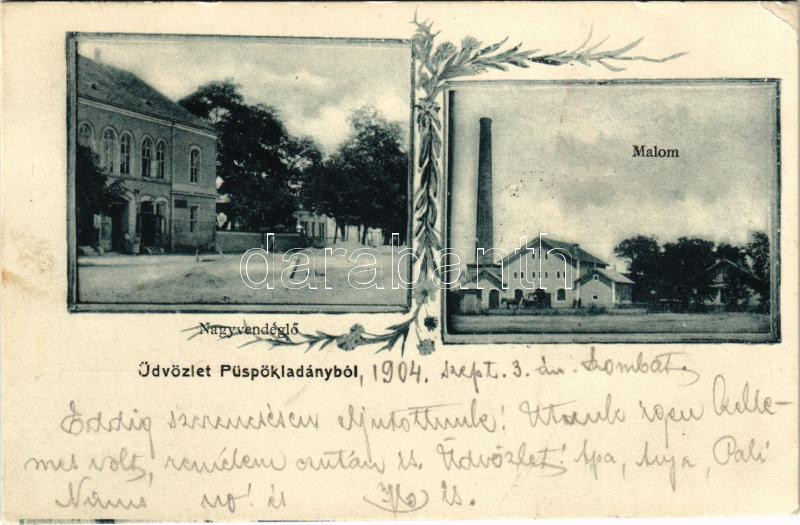 Malom
darabanth
Nagyvendéglő
Üdvözlet Püspökladányból, 1904. szept. 3. án. Szombat,
Eddig szerencsésen eljutottunk! Utunk igen kelle-
mes volt, remélem ezután is. Üdvözlet! Apa, Anya, Pali
no! és is.